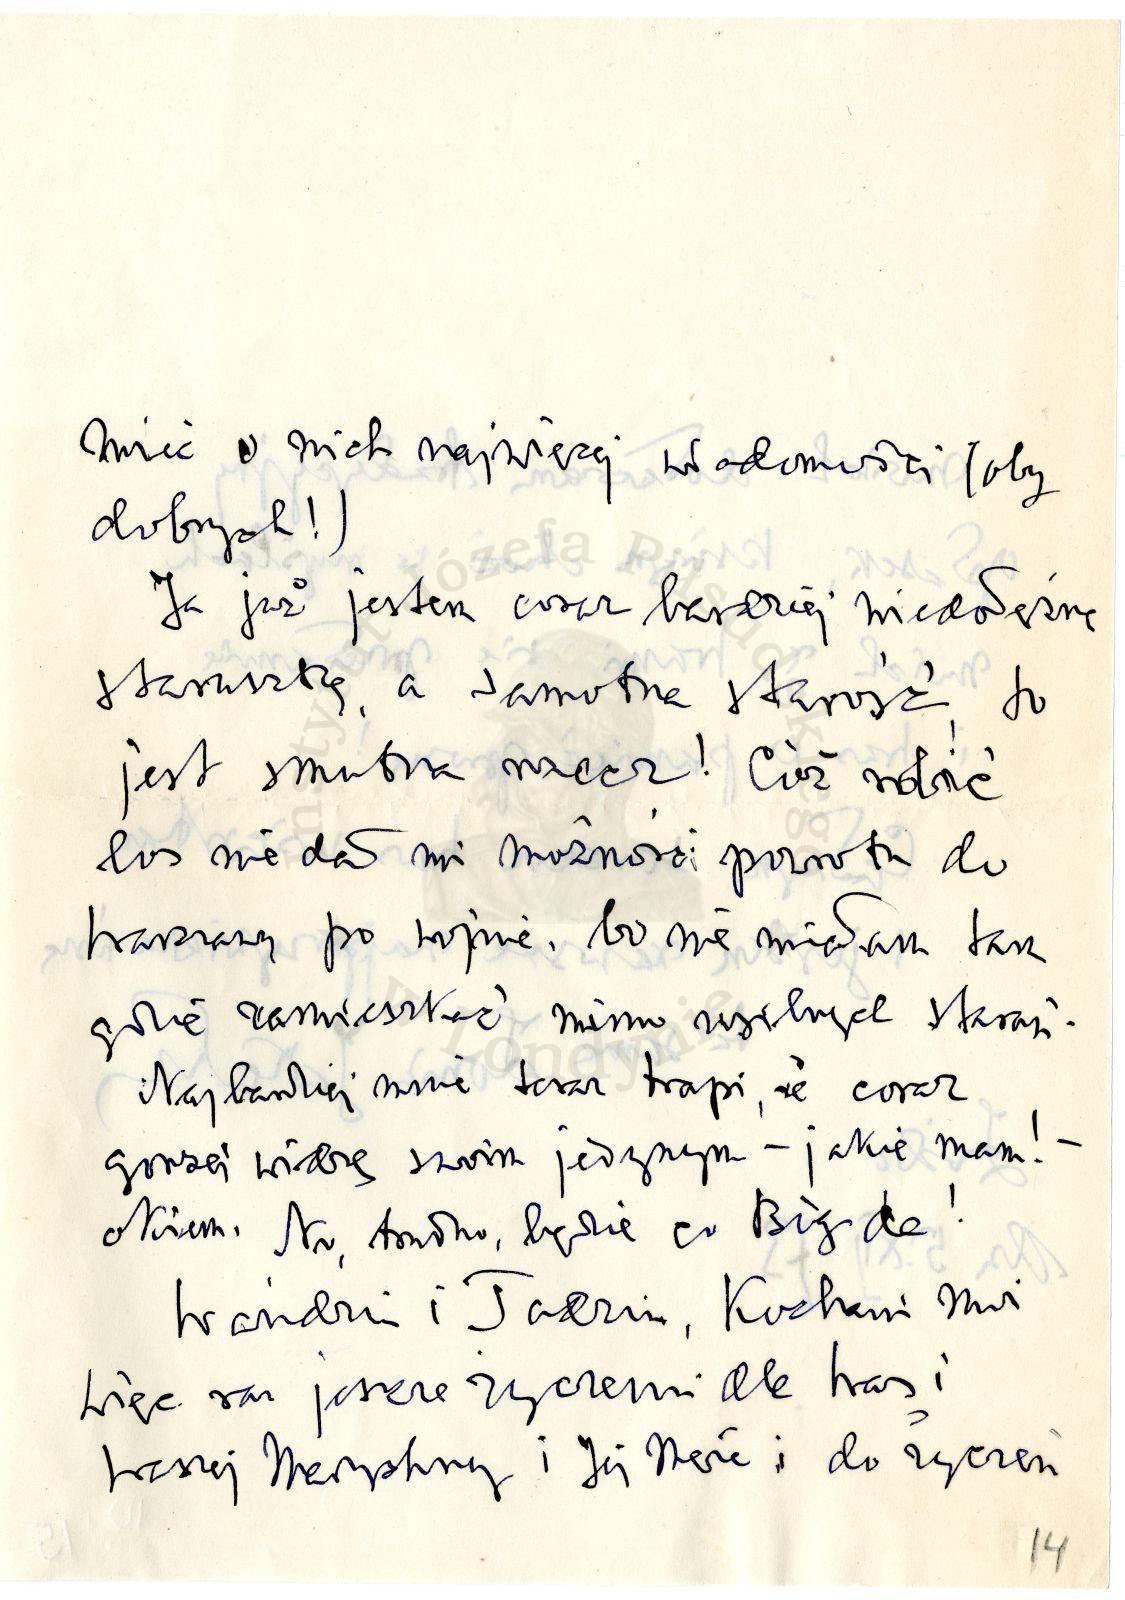 mieć o nich najwięcej wiadomości (oby
dobrych!)
Ja już jestem coraz bardziej niedołężną
staruszką, a samotna starość, to
jest smutna rzecz! Cóż robić
los nie dał mi możności powrotu do
Warszawy po wojnie, bo nie miałam tam
gdzie zamieszkać mimo usilnych starań.
Najbardziej mnie teraz trapi, że coraz
gorzej widzę swoim jedynym – jakie mam! –
okiem. No, trudno, będzie co Bóg da!
Wandziu i Tadziu, Kochani moi
więc raz jeszcze życzenia dla Was i
Waszej i Jej Męża i do życzeń
14
Instytut Józefa Piłsudskiego
w Londynie